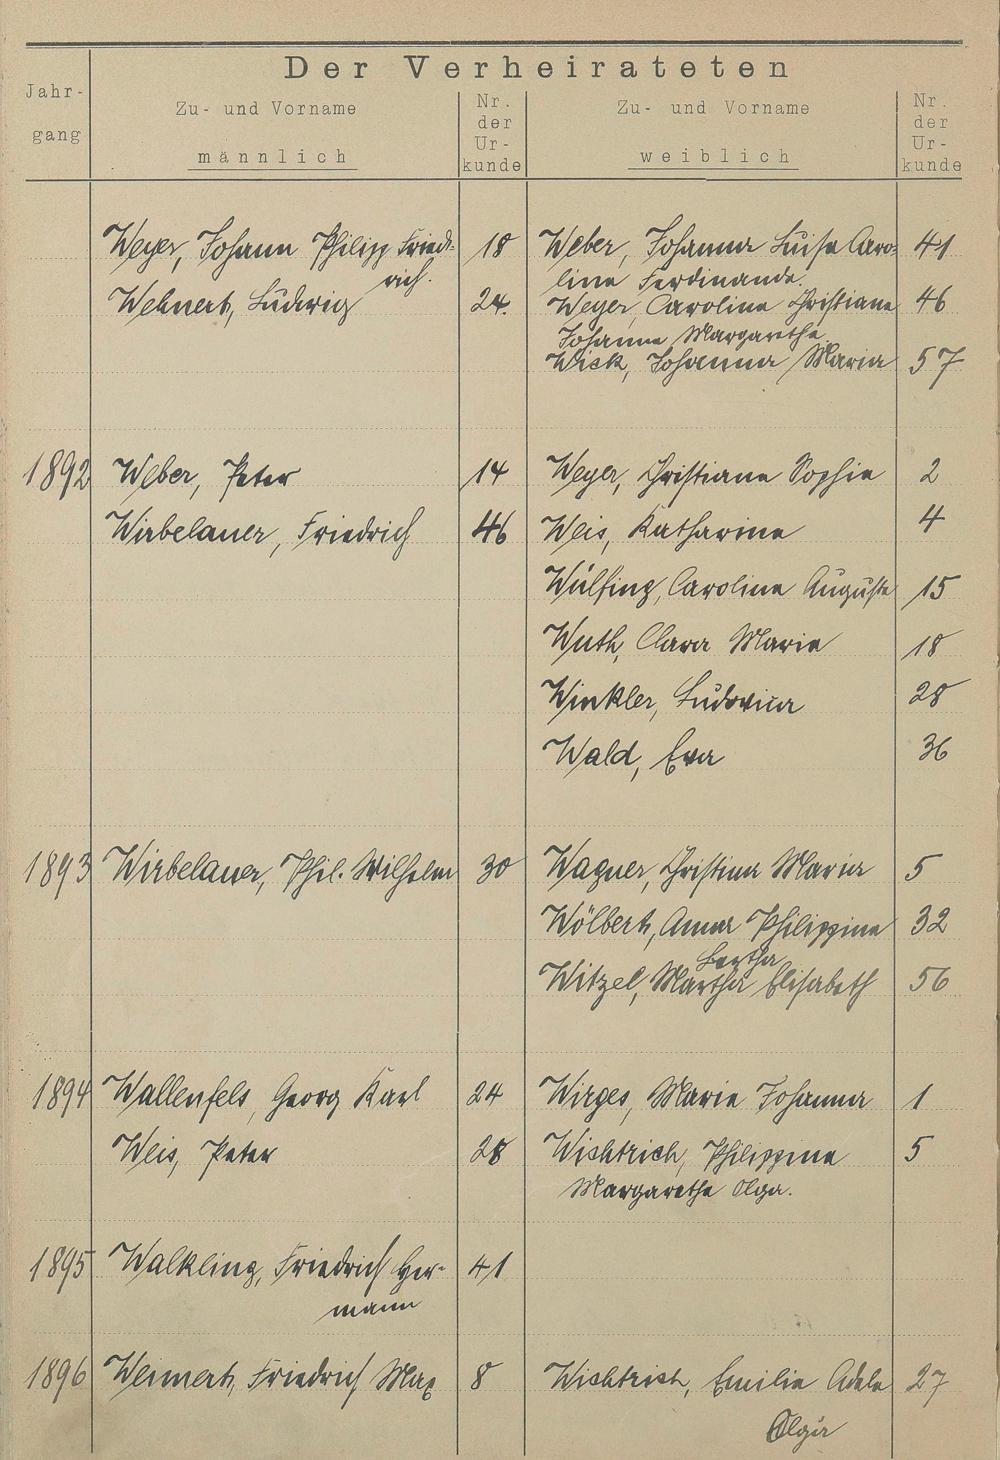 Der Verheirateten
Jahrgang
Zu- und Vorname
männlich
Nr. der Urkunde
Zu- und Vorname
weiblich
Nr. der Urkunde
Weyer, Johann Philipp Fried- 18 Weber, Johanna Luise Caro- 41
rich. line Ferdinande.
Wehnert, Ludwig 24. Weyer, Caroline Christiane 46
Johanna Margarethe
Wick, Johanna Maria 57
1892 Weber, Peter 14 Weyer, Christiane Sophie 2
Wirbelauer, Friedrich 46 Weis, Katharine 4
Wülfing, Caroline Auguste 15
Wuth, Clara Marie 18
Winkler, Ludovica 28
Wald, Eva 36
1893 Wirbelauer, Phil. Wilhelm 30 Wagner, Christina Maria 5
Wölbert, Anna Philippine 32
Bertha
Witzel, Martha Elisabeth 56
1894 Wallenfels, Georg Karl 24 Wirges, Marie Johanna 1
Weis, Peter 28 Wichtrich, Philippine 5
Margarethe Olga.
1895 Walkling, Friedrich Her- 41
mann
1896 Weimert, Friedrich Max 8 Wichtrich, Emilie Adele 27
Olga